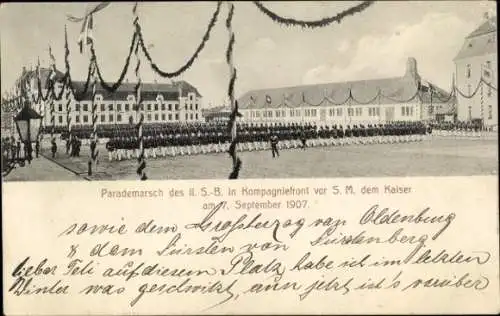 Parademarsch des II. S.-B. in Kompagniefront vor S. M. dem Kaiser
am 7. September 1907.
sowie dem Großherzog von Oldenburg
& dem Fürsten von Fürstenberg
lieber auf diesem Platz habe ich im letzten
Winter was geschwitzt, aun jetzt ist's vorüber